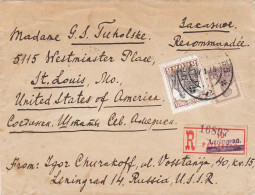 Заказное.
Recommandée
Madame G. S. Tuholske.
5115 Westminster Place,
St. Louis, Mo.,
United States of America.
Соедин. Штаты Сев. Америки.
R
From: Igor Churakoff, ul. Vosstanja, 40, kv. 15
Leningrad 14, Russia, U.S.S.R.